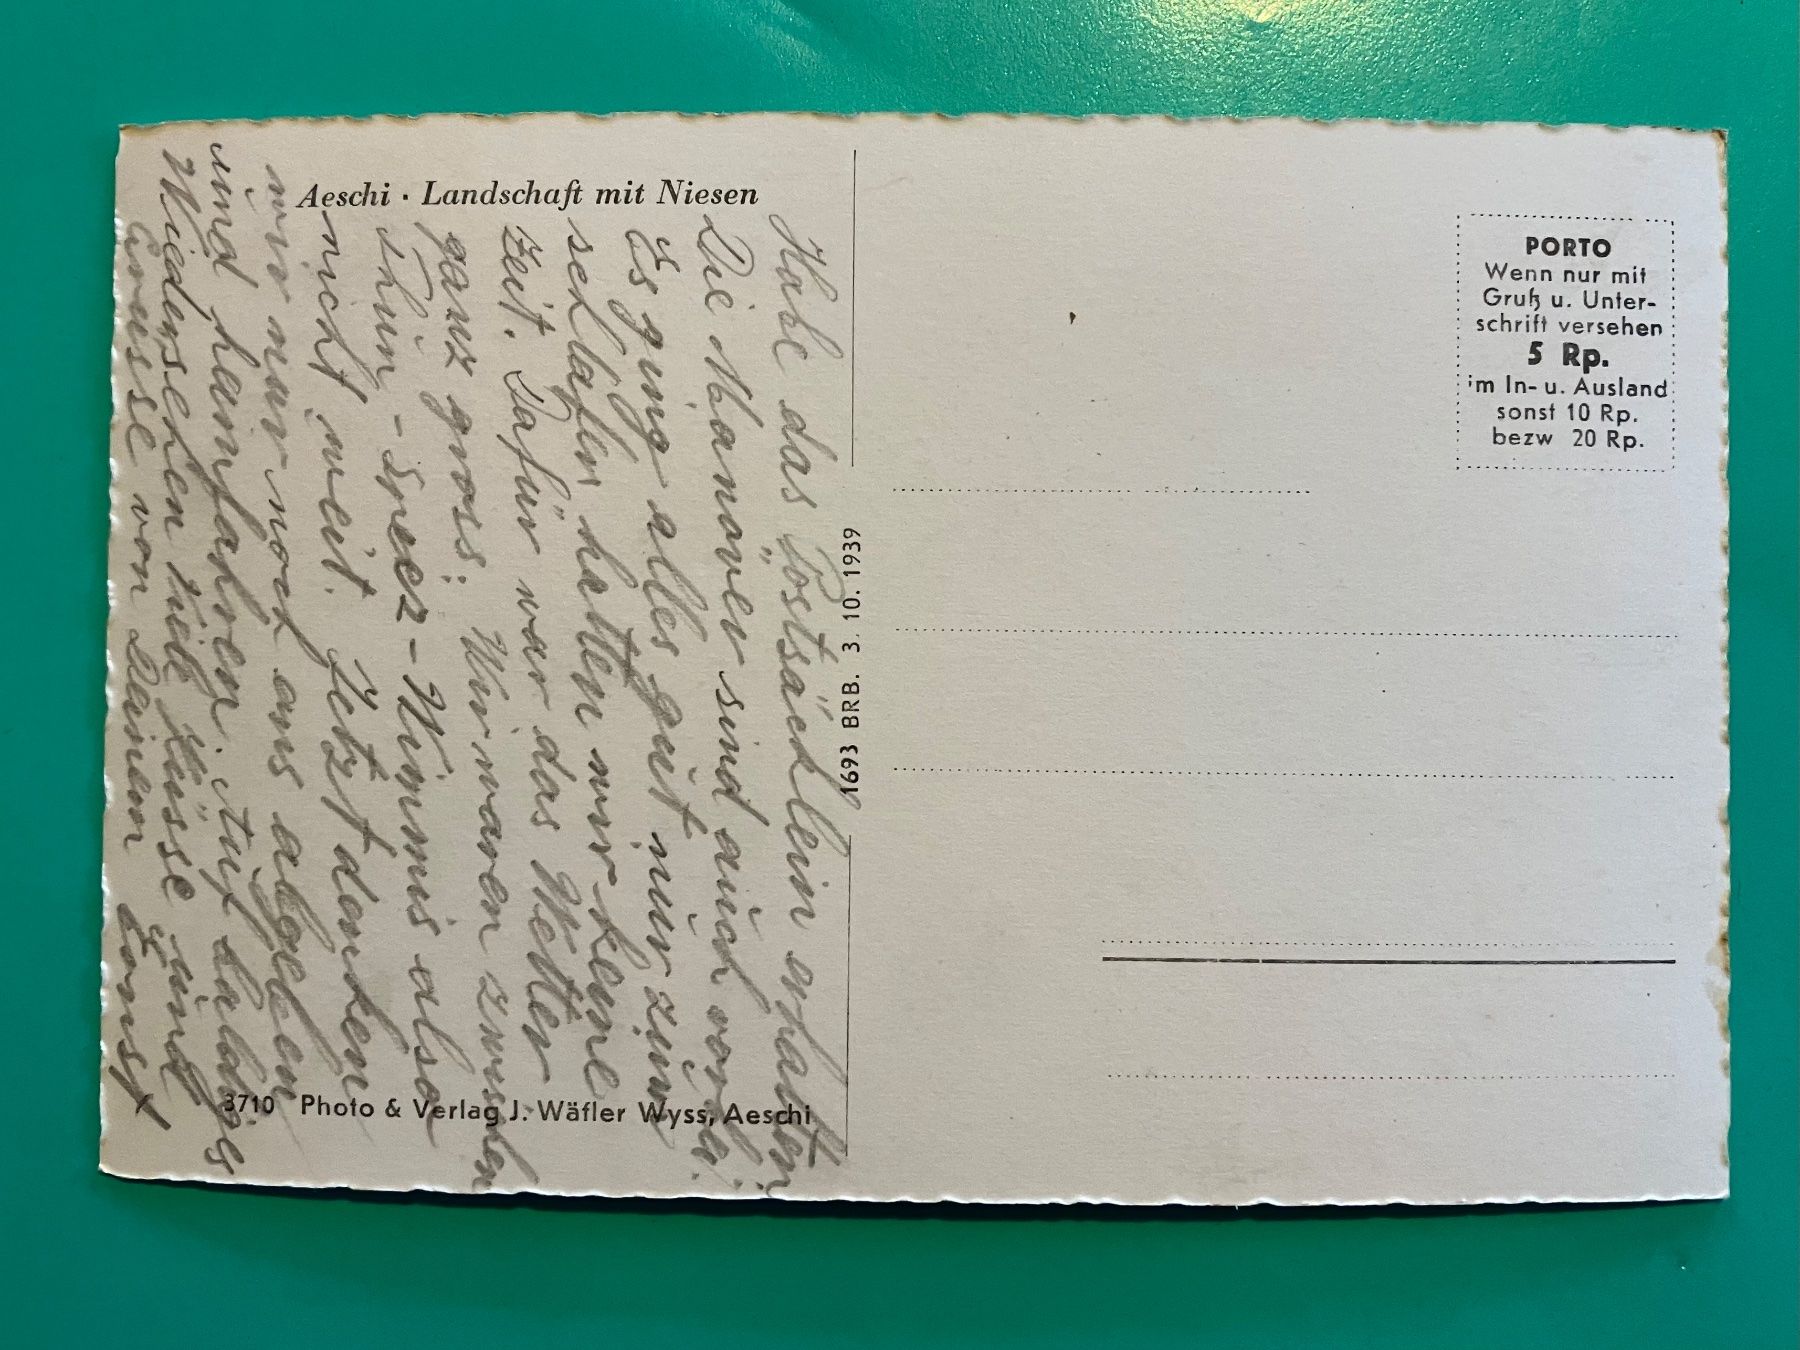 Aeschi · Landschaft mit Niesen
Habe das Postsäcklein erhalten
Die Manöver sind auch vorbei.
Es ging alles gut nur zum
schlafen hatten wir keine
Zeit. Dafür war das Wetter
ganz gross. Wir waren zwischen
Thun - Spiez - Wimmis also
nicht weit. Jetzt danken
wir nur noch ans abgeben
und heimfahren. Auf baldiges
Wiedersehen viele Küsse und
Grüsse von Deinem Ernst
3710 Photo & Verlag J. Wäfler Wyss, Aeschi
1693 BRB. 3. 10. 1939
PORTO
Wenn nur mit
Gruß u. Unter-
schrift versehen
5 Rp.
im In- u. Ausland
sonst 10 Rp.
bezw 20 Rp.